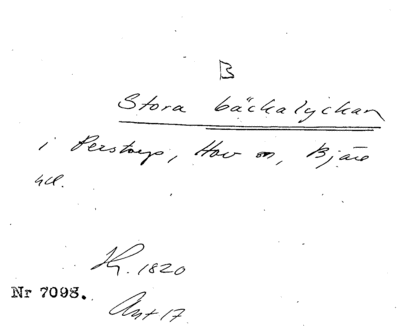 B
Stora bäckalyckan
i Perstorp, Hov sn, Bjäre
hd.
Hy. 1820
Nr 7098.
Akt 17